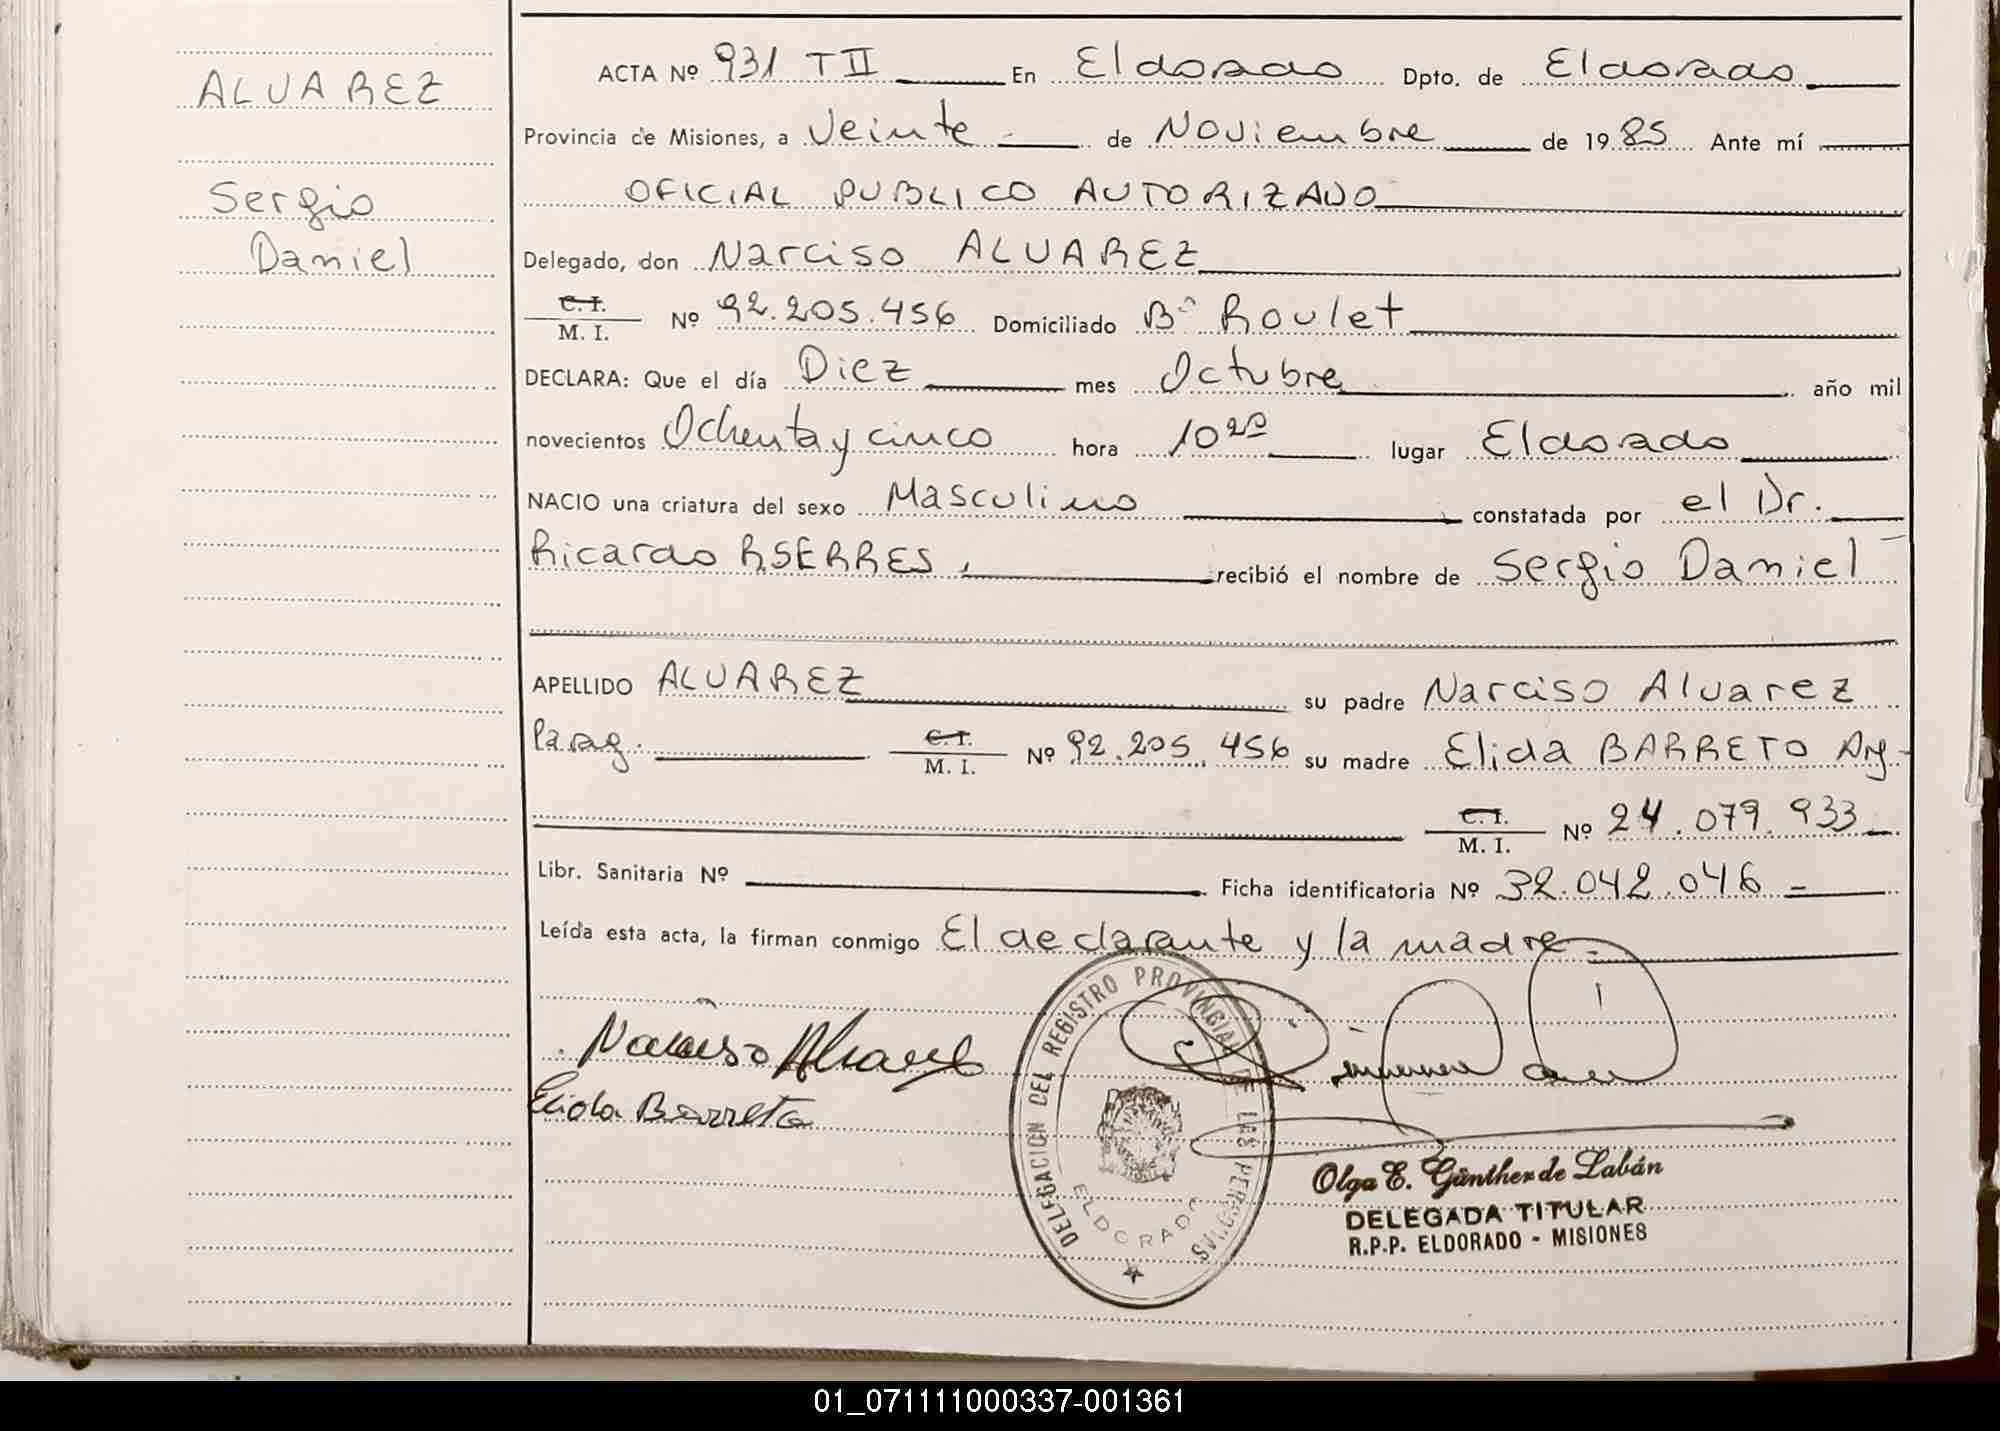 ALVAREZ
Sergio
Daniel
ACTA Nº 931 T II En Eldorado Dpto. de Eldorado
Provincia de Misiones, a Veinte de Noviembre de 1985 Ante mí
OFICIAL PUBLICO AUTORIZADO
Delegado, don Narciso ALVAREZ
C. I.
M. I. Nº 92.205.456 Domiciliado Bº Roulet
DECLARA: Que el día Diez mes Octubre año mil
novecientos Ochenta y cinco hora 10 20 lugar Eldorado
NACIO una criatura del sexo Masculino constatada por el Dr.
Ricardo RSERRES, recibió el nombre de Sergio Daniel
APELLIDO ALVAREZ su padre Narciso Alvarez
Parag. C. I. M. I. Nº 92.205.456 su madre Elida BARRETO Arg-
C. I.
M. I. Nº 24.079.933
Libr. Sanitaria Nº Ficha identificatoria Nº 32.042.046
Leída esta acta, la firman conmigo El declarante y la madre
Narciso Alvarez
Elida Barreto
DELEGACION DEL REGISTRO PROVINCIAL DE LAS PERSONAS
ELDORADO
Olga E. Günther de Labán
DELEGADA TITULAR
R.P.P. ELDORADO - MISIONES
01_071111000337-001361